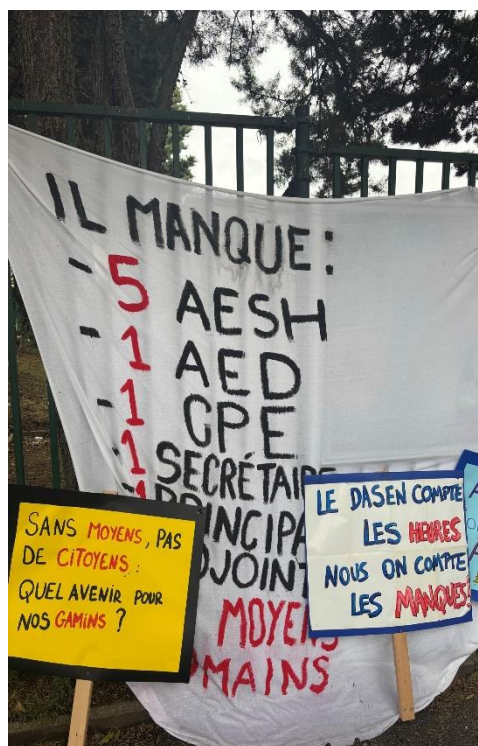 IL MANQUE:
- 5 AESH
- 1 AED
- 1 CPE
- 1 SECRÉTAIRE
MOYENS
SANS MOYENS, PAS
DE CITOYENS :
QUEL AVENIR POUR
NOS GAMINS ?
LE DASEN COMPTE
LES HEURES
NOUS ON COMPTE
LES MANQUES!